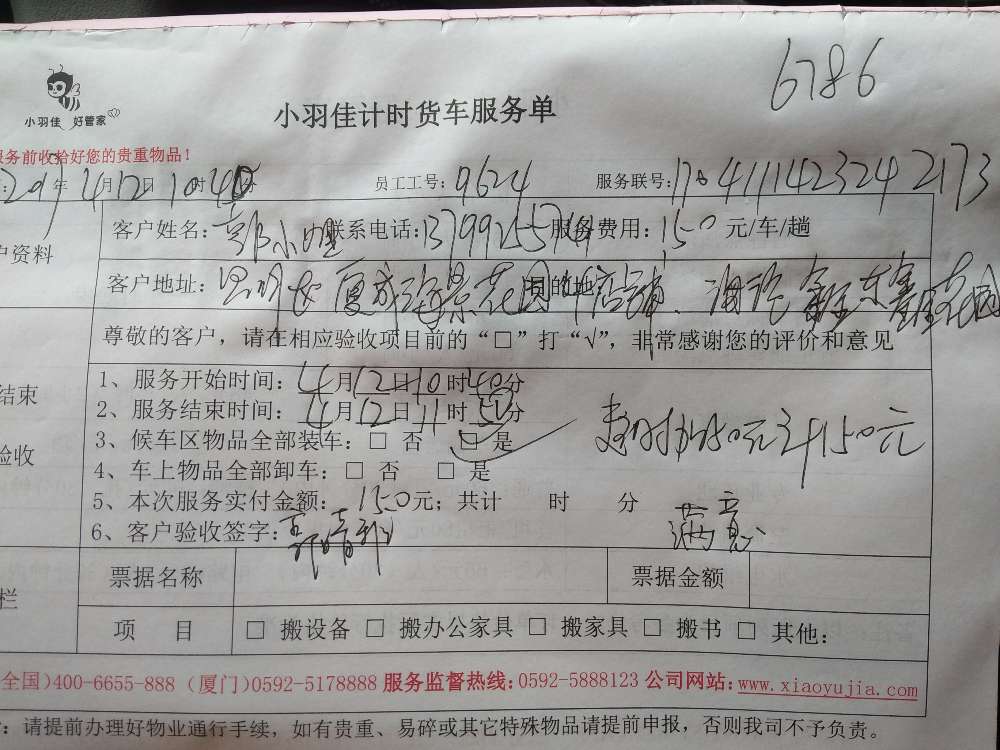 6786
小羽佳 好管家
小羽佳计时货车服务单
服务前收拾好您的贵重物品！
2017年4月12日10时40分 员工工号：9624 服务联号：
客户资料
客户姓名： 小姐 联系电话： 服务费用：150元/车/趟
客户地址：思明区厦成海景花园 店铺 目的地
尊敬的客户，请在相应验收项目前的“□”打“√”，非常感谢您的评价和意见
结束
验收
1、服务开始时间：4月12日10时40分
2、服务结束时间：4月12日11时50分
3、候车区物品全部装车：□ 否 □ 是
4、车上物品全部卸车：□ 否 □ 是
150元
5、本次服务实付金额：150元；共计 时 分
6、客户验收签字： 满意
票据名称 票据金额
栏
项 目 □ 搬设备 □ 搬办公家具 □ 搬家具 □ 搬书 □ 其他：
全国)400-6655-888 (厦门)0592-5178888 服务监督热线：0592-5888123 公司网站：www.xiaoyujia.com
：请提前办理好物业通行手续，如有贵重、易碎或其它特殊物品请提前申报，否则我司不予负责。